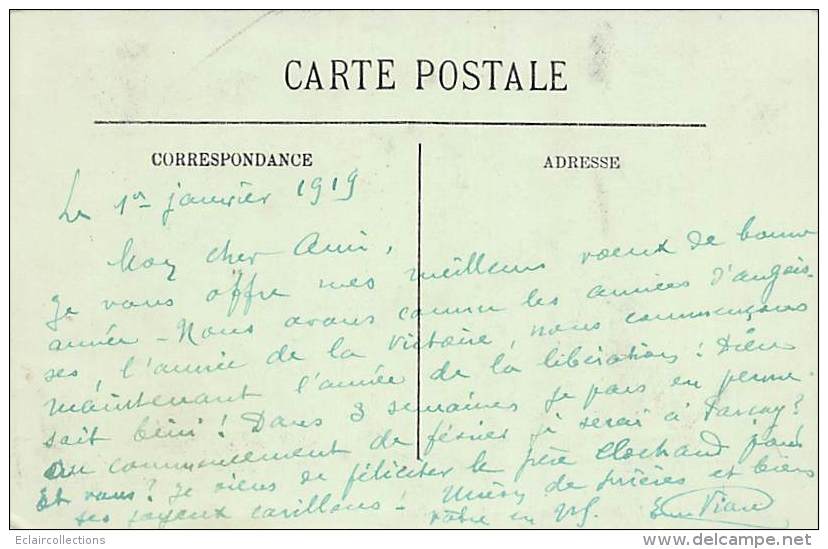 CARTE POSTALE
CORRESPONDANCE
ADRESSE
Le 1er janvier 1919
Mon cher Ami,
Je vous offre mes meilleurs voeux de bonne
année - Nous avons connu les années d'angois-
ses, l'année de la victoire, nous commençons
maintenant l'année de la libération! Dieu
soit béni! Dans 3 semaines je pars en perme.
au commencement de février je serai à
Et vous? Je viens de féliciter le père
ses joyeux carillons! de prières et bien
vôtre en
Eclaircollections
delcampe.net